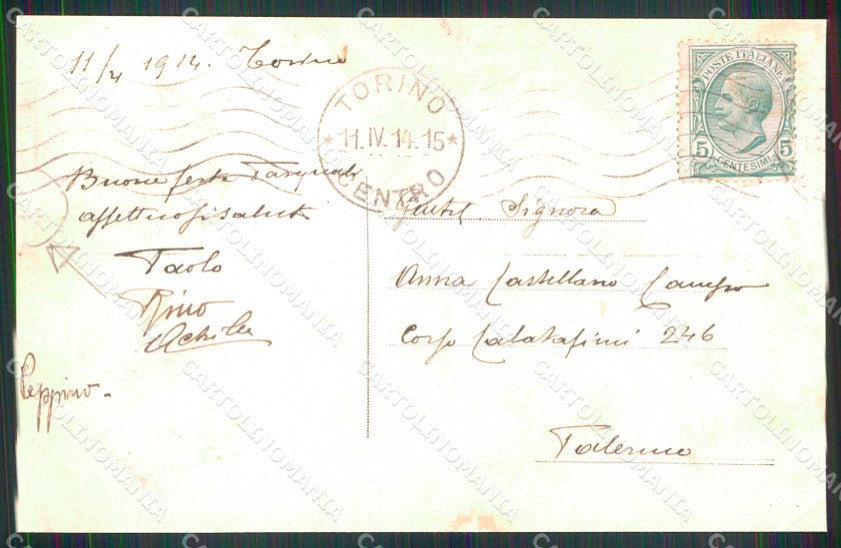 11/4 1914. Torino
TORINO
11.IV.14.15
CENTRO
POSTE ITALIANE
5 5
CENTESIMI
Buone feste Pasquali
affettuosi saluti
Paolo
Rino
Achille
Peppino.
Gentil. Signora
Anna Castellano
Corso Calatafimi 246
Palermo
CARTOLINOMANIA